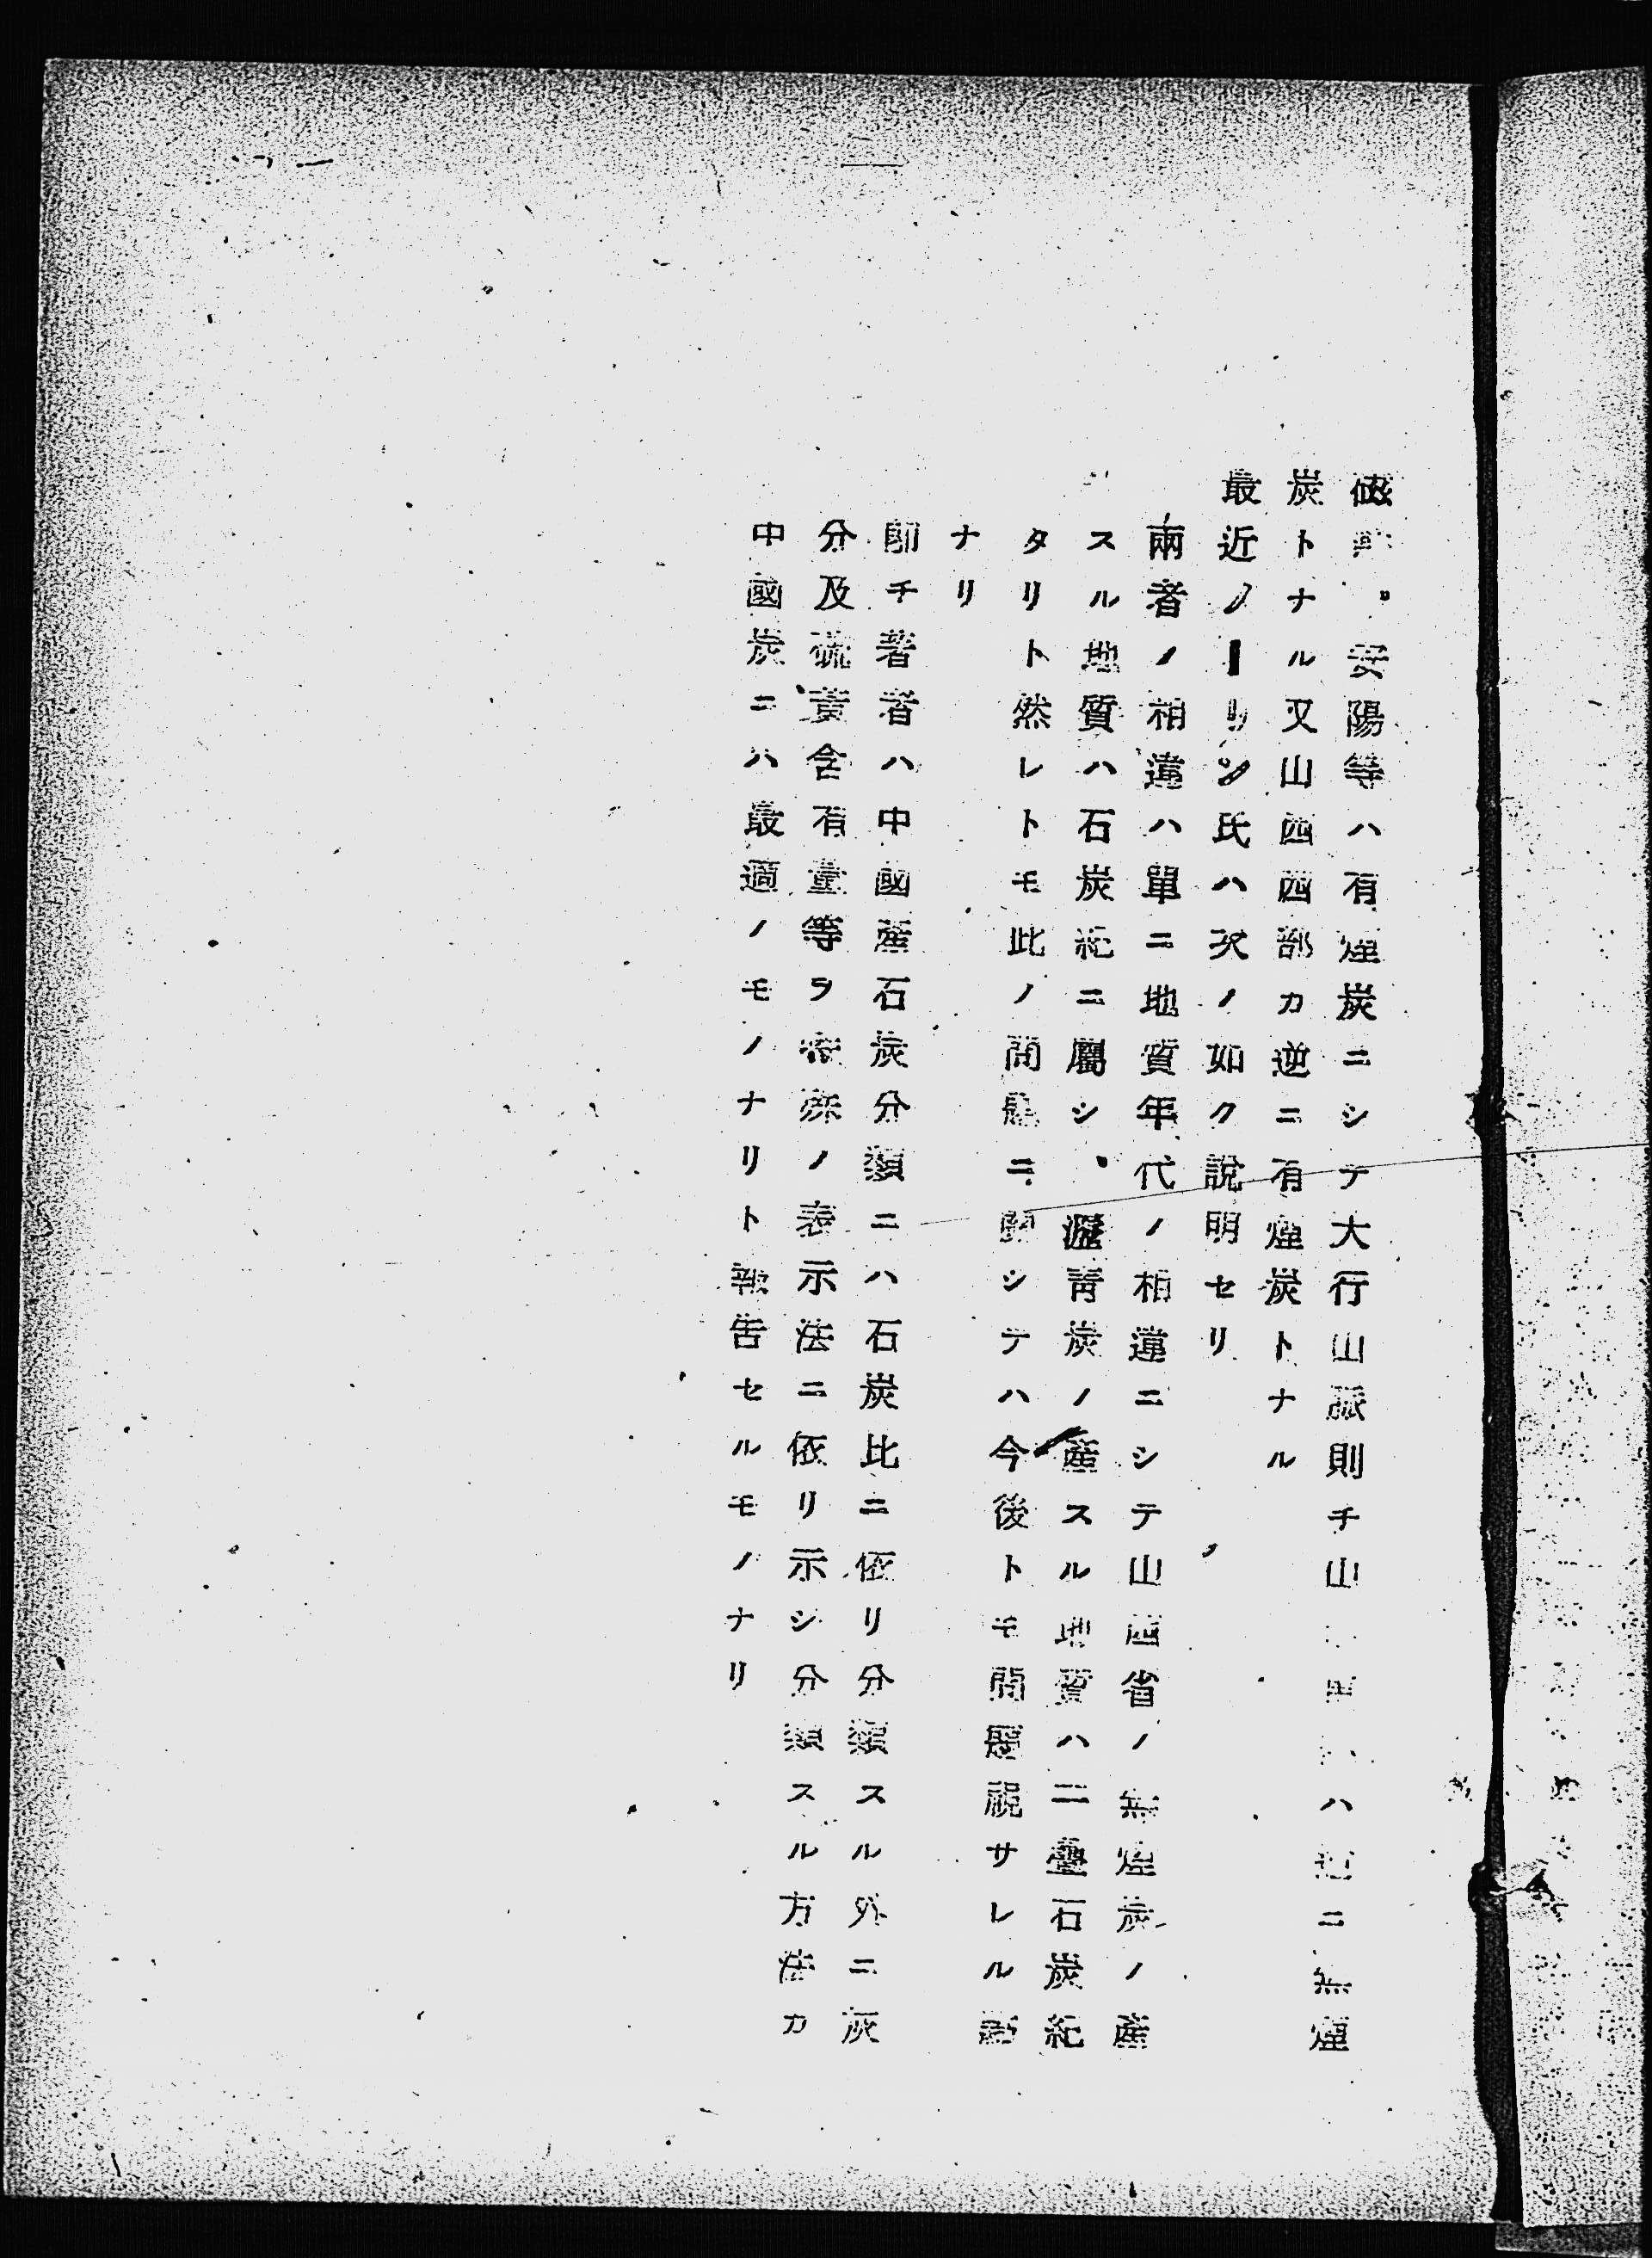 磁縣、安陽等ハ有煙炭ニシテ大行山脈則チ山ハニ無煙
炭トナル又山西西部カ逆ニ有煙炭トナル
最近ノーリン氏ハ次ノ如ク説明セリ
兩者ノ相違ハ單ニ地質年代ノ相違ニシテ山西省ノ無煙炭ノ産
スル地質ハ石炭紀ニ屬シ、瀝青炭ノ産スル地質ハ二疊石炭紀
タリト然レトモ此ノ問題ニ關シテハ今後トモ問題視サレル
ナリ
卽チ著者ハ中國産石炭分類ニハ石炭比ニ依リ分類スル外ニ灰
分及硫黃含有量等ヲノ表示法ニ依リ示シ分類スル方法カ
中國炭ニハ最適ノモノナリト報告セルモノナリ